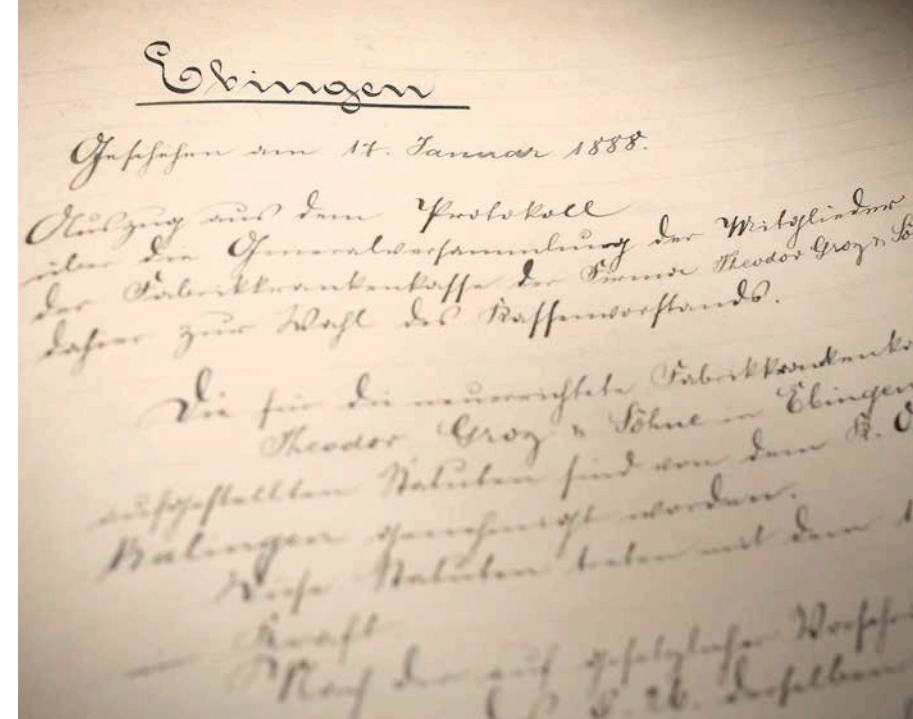 Ebingen
Geschehen am 17. Januar 1888.
Auszug aus dem Protokoll
über die Generalversammlung der Mitglieder
der Fabrikkrankenkasse der Firma Theodor Groz & Sö
dahier zur Wahl des Kassenvorstands.
Die für die neuerrichtete Fabrikkrankenka
Theodor Groz & Söhne in Ebingen
aufgestellten Statuten sind von dem K. O
Balingen genehmigt worden.
Diese Statuten treten mit dem 1
in Kraft.
Nach der auf gesetzlicher Vorschri
§. 26. derselben